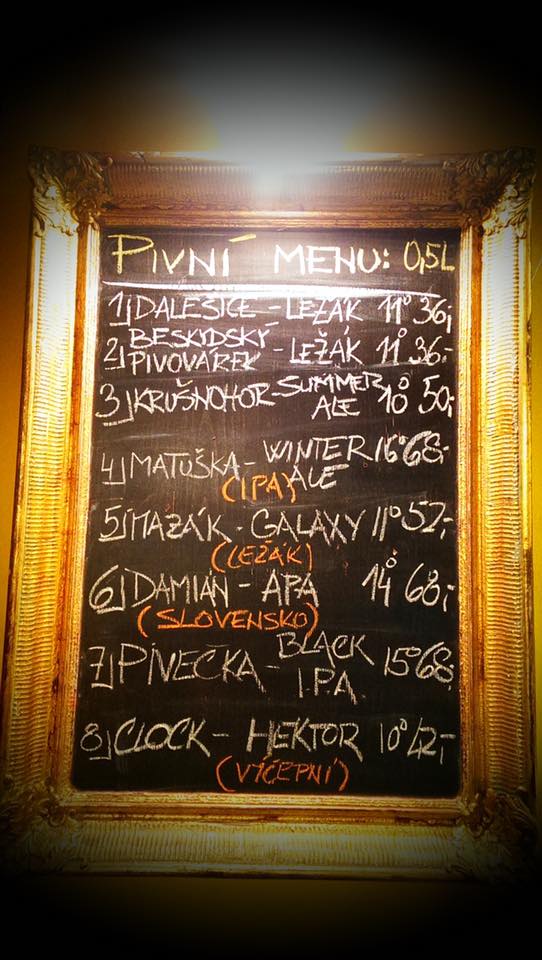 PIVNÍ MENU: 0,5L
1) DALEŠICE - LEŽÁK 11° 36,-
2) BESKIDSKÝ PIVOVÁREK - LEŽÁK 11° 36.-
3) KRUŠNOHOR - SUMMER ALE 10° 50,-
4) MATUŠKA - WINTER ALE 16° 68,-
(IPA)
5) MAZÁK - GALAXY 11° 52,-
(LEŽÁK)
6) DAMIAN - APA 14° 68,-
(SLOVENSKO)
7) PIVEČKA - BLACK I.P.A. 15° 68,-
8) CLOCK - HEKTOR 10° 42,-
(VÝČEPNÍ)